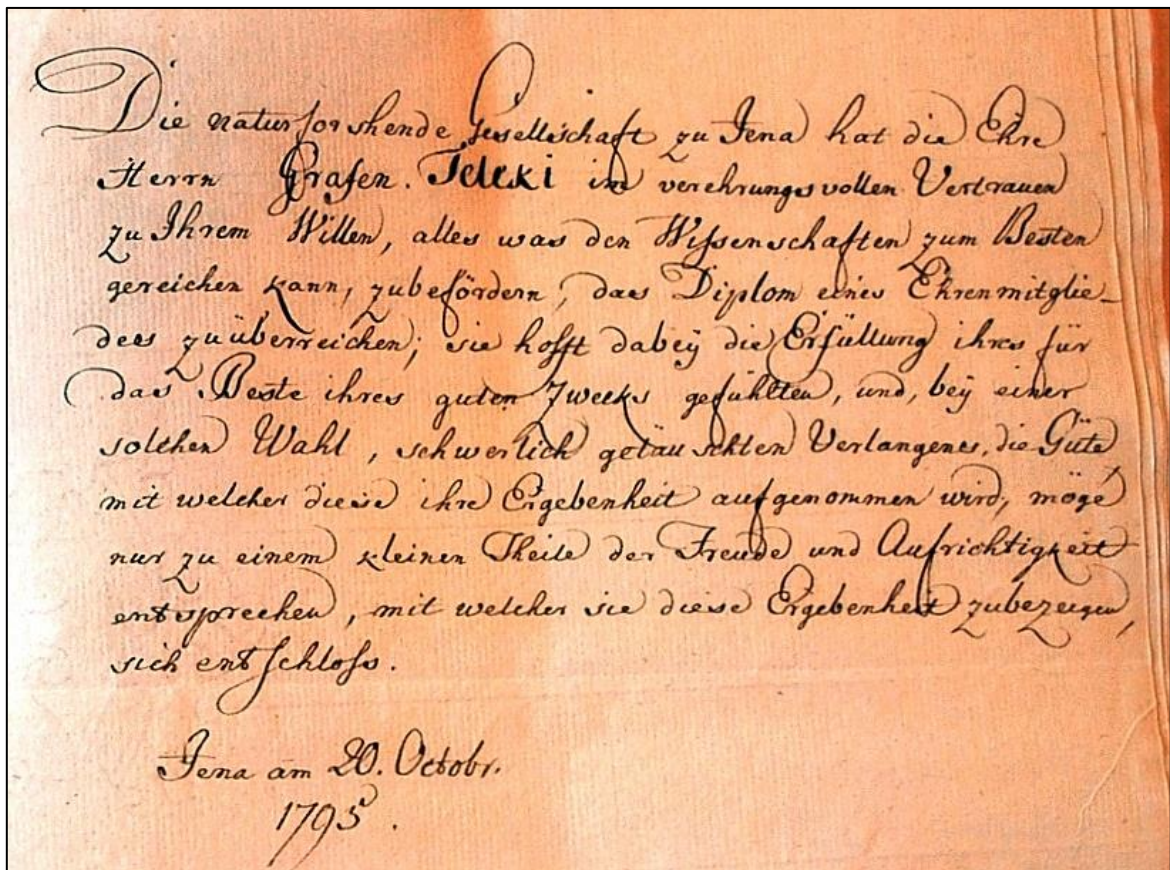 Die naturforshende Gesellschaft zu Jena hat die Ehre
Herrn Grafen. Teleki im verehrungsvollen Vertrauen
zu Ihrem Willen, alles was den Wißenschaften zum Besten
gereichen kann, zubefördern, das Diplom eines Ehrenmitglie-
des zuüberreichen; sie hofft dabeÿ die Erfüllung ihres für
das Beste ihres guten Zwecks gefühlten, und, beÿ einer
solchen Wahl, schwerlich getäuschten Verlangenes, die Güte
mit welcher diese ihre Ergebenheit aufgenommen wird, möge
nur zu einem kleinen Theile der Freude und Aufrichtigkeit
entsprechen, mit welcher sie diese Ergebenheit zubezeigen,
sich entschloß.
Jena am 20. Octobr.
1795.